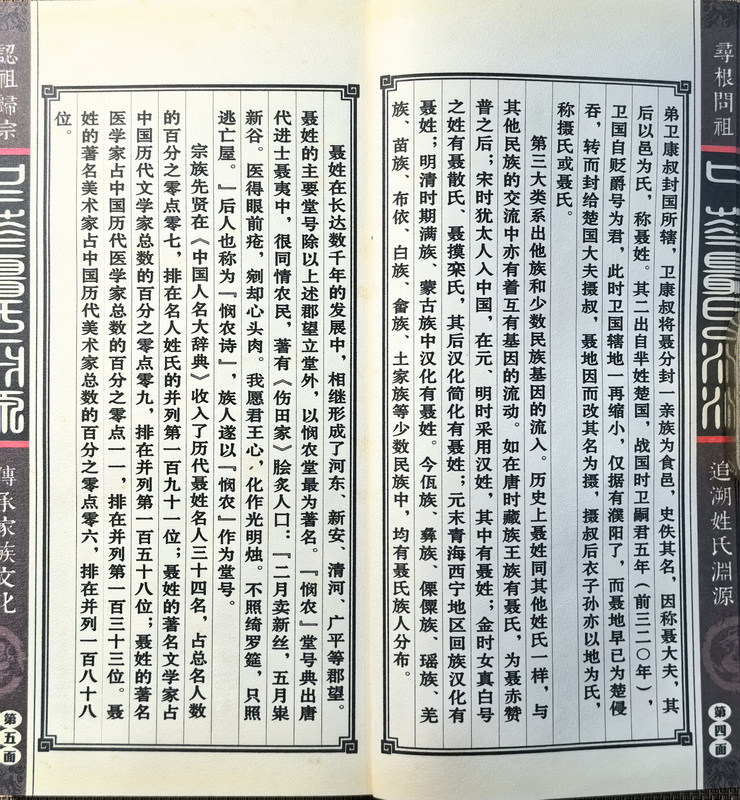 尋根問祖
追溯姓氏淵源
第四面
弟卫康叔封国所辖，卫康叔将聂分封一亲族为食邑，史佚其名，因称聂大夫，其
后以邑为氏，称聂姓。其二出自芈姓楚国，战国时卫嗣君五年（前三二〇年），
卫国自贬爵号为君，此时卫国辖地一再缩小，仅据有濮阳了，而聂地早已为楚侵
吞，转而封给楚国大夫摄叔，聂地因而改其名为摄，摄叔后衣子孙亦以地为氏，
称摄氏或聂氏。
第三大类系出他族和少数民族基因的流入。历史上聂姓同其他姓氏一样，与
其他民族的交流中亦有着互有基因的流动。如在唐时藏族王族有聂氏，为聂赤赞
普之后；宋时犹太人入中国，在元、明时采用汉姓，其中有聂姓；金时女真白号
之姓有聂散氏、聂摸栾氏，其后汉化简化有聂姓；元末青海西宁地区回族汉化有
聂姓；明清时期满族、蒙古族中汉化有聂姓。今佤族、彝族、傈僳族、瑶族、羌
族、苗族、布依、白族、畲族、土家族等少数民族中，均有聂氏族人分布。
聂姓在长达数千年的发展中，相继形成了河东、新安、清河、广平等郡望。
聂姓的主要堂号除以上述郡望立堂外，以悯农堂最为著名。『悯农』堂号典出唐
代进士聂夷中，很同情农民，著有《伤田家》脍炙人口：『二月卖新丝，五月粜
新谷。医得眼前疮，剜却心头肉。我愿君王心，化作光明烛。不照绮罗筵，只照
逃亡屋。』后人也称为『悯农诗』，族人遂以『悯农』作为堂号。
宗族先贤在《中国人名大辞典》收入了历代聂姓名人三十四名，占总名人数
的百分之零点零七，排在名人姓氏的并列第一百九十一位；聂姓的著名文学家占
中国历代文学家总数的百分之零点零九，排在并列第一百五十八位；聂姓的著名
医学家占中国历代医学家总数的百分之零点一一，排在并列第一百三十三位。聂
姓的著名美术家占中国历代美术家总数的百分之零点零六，排在并列一百八十八
位。
認祖歸宗
傳承家族文化
第五面